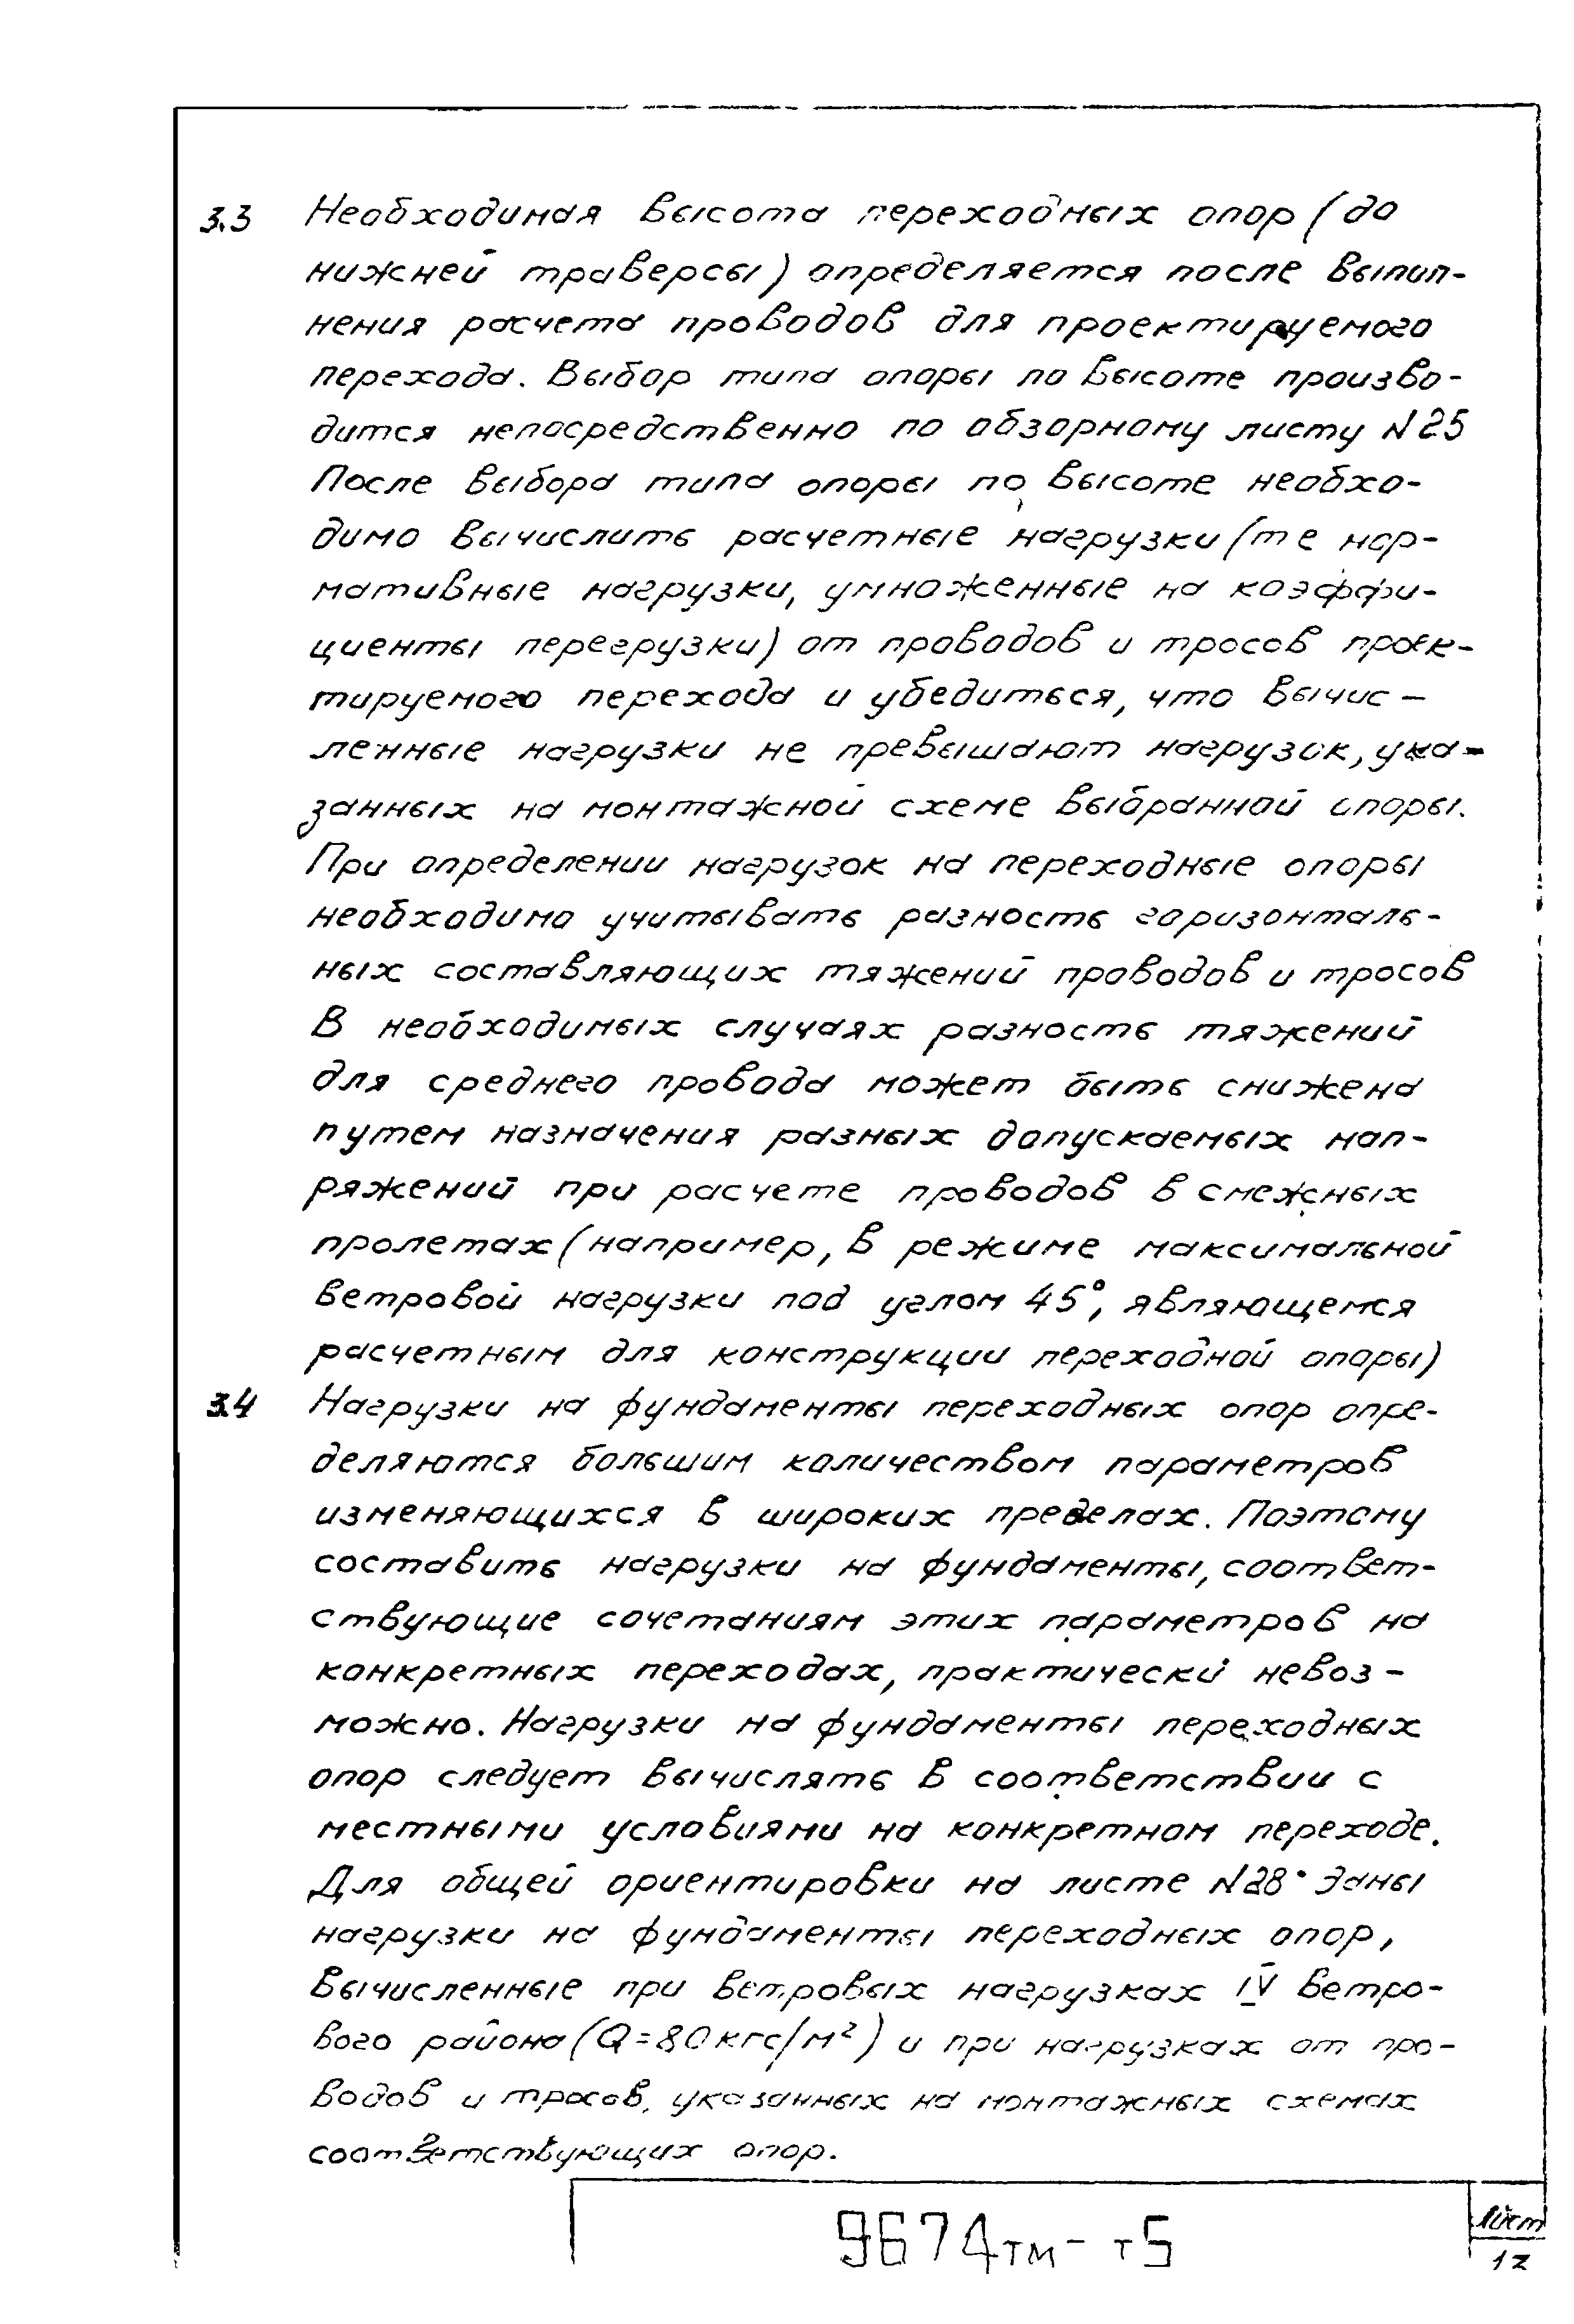 3.3 Необходимая высота переходных опор (до
нижней траверсы) определяется после выпол-
нения расчета проводов для проектируемого
перехода. Выбор типа опоры по высоте произво-
дится непосредственно по обзорному листу N25
После выбора типа опоры по высоте необхо-
димо вычислить расчетные нагрузки (т е нор-
мативные нагрузки, умноженные на коэффи-
циенты перегрузки) от проводов и тросов проек-
тируемого перехода и убедиться, что вычис-
ленные нагрузки не превышают нагрузок, ука-
занных на монтажной схеме выбранной опоры.
При определении нагрузок на переходные опоры
необходимо учитывать разность горизонталь-
ных составляющих тяжений проводов и тросов
В необходимых случаях разность тяжений
для среднего провода может быть снижена
путем назначения разных допускаемых нап-
ряжений при расчете проводов в смежных
пролетах (например, в режиме максимальной
ветровой нагрузки под углом 45°, являющемся
расчетным для конструкции переходной опоры)
3.4 Нагрузки на фундаменты переходных опор опре-
деляются большим количеством параметров
изменяющихся в широких пределах. Поэтому
составить нагрузки на фундаменты, соответ-
ствующие сочетаниям этих параметров на
конкретных переходах, практически невоз-
можно. Нагрузки на фундаменты переходных
опор следует вычислять в соответствии с
местными условиями на конкретном переходе.
Для общей ориентировки на листе N28 даны
нагрузки на фундаменты переходных опор,
вычисленные при ветровых нагрузках IV ветро-
вого района (Q=80кгс/м²) и при нагрузках от про-
водов и тросов, указанных на монтажных схемах
соответствующих опор.
9674тм-т5
Лист
12